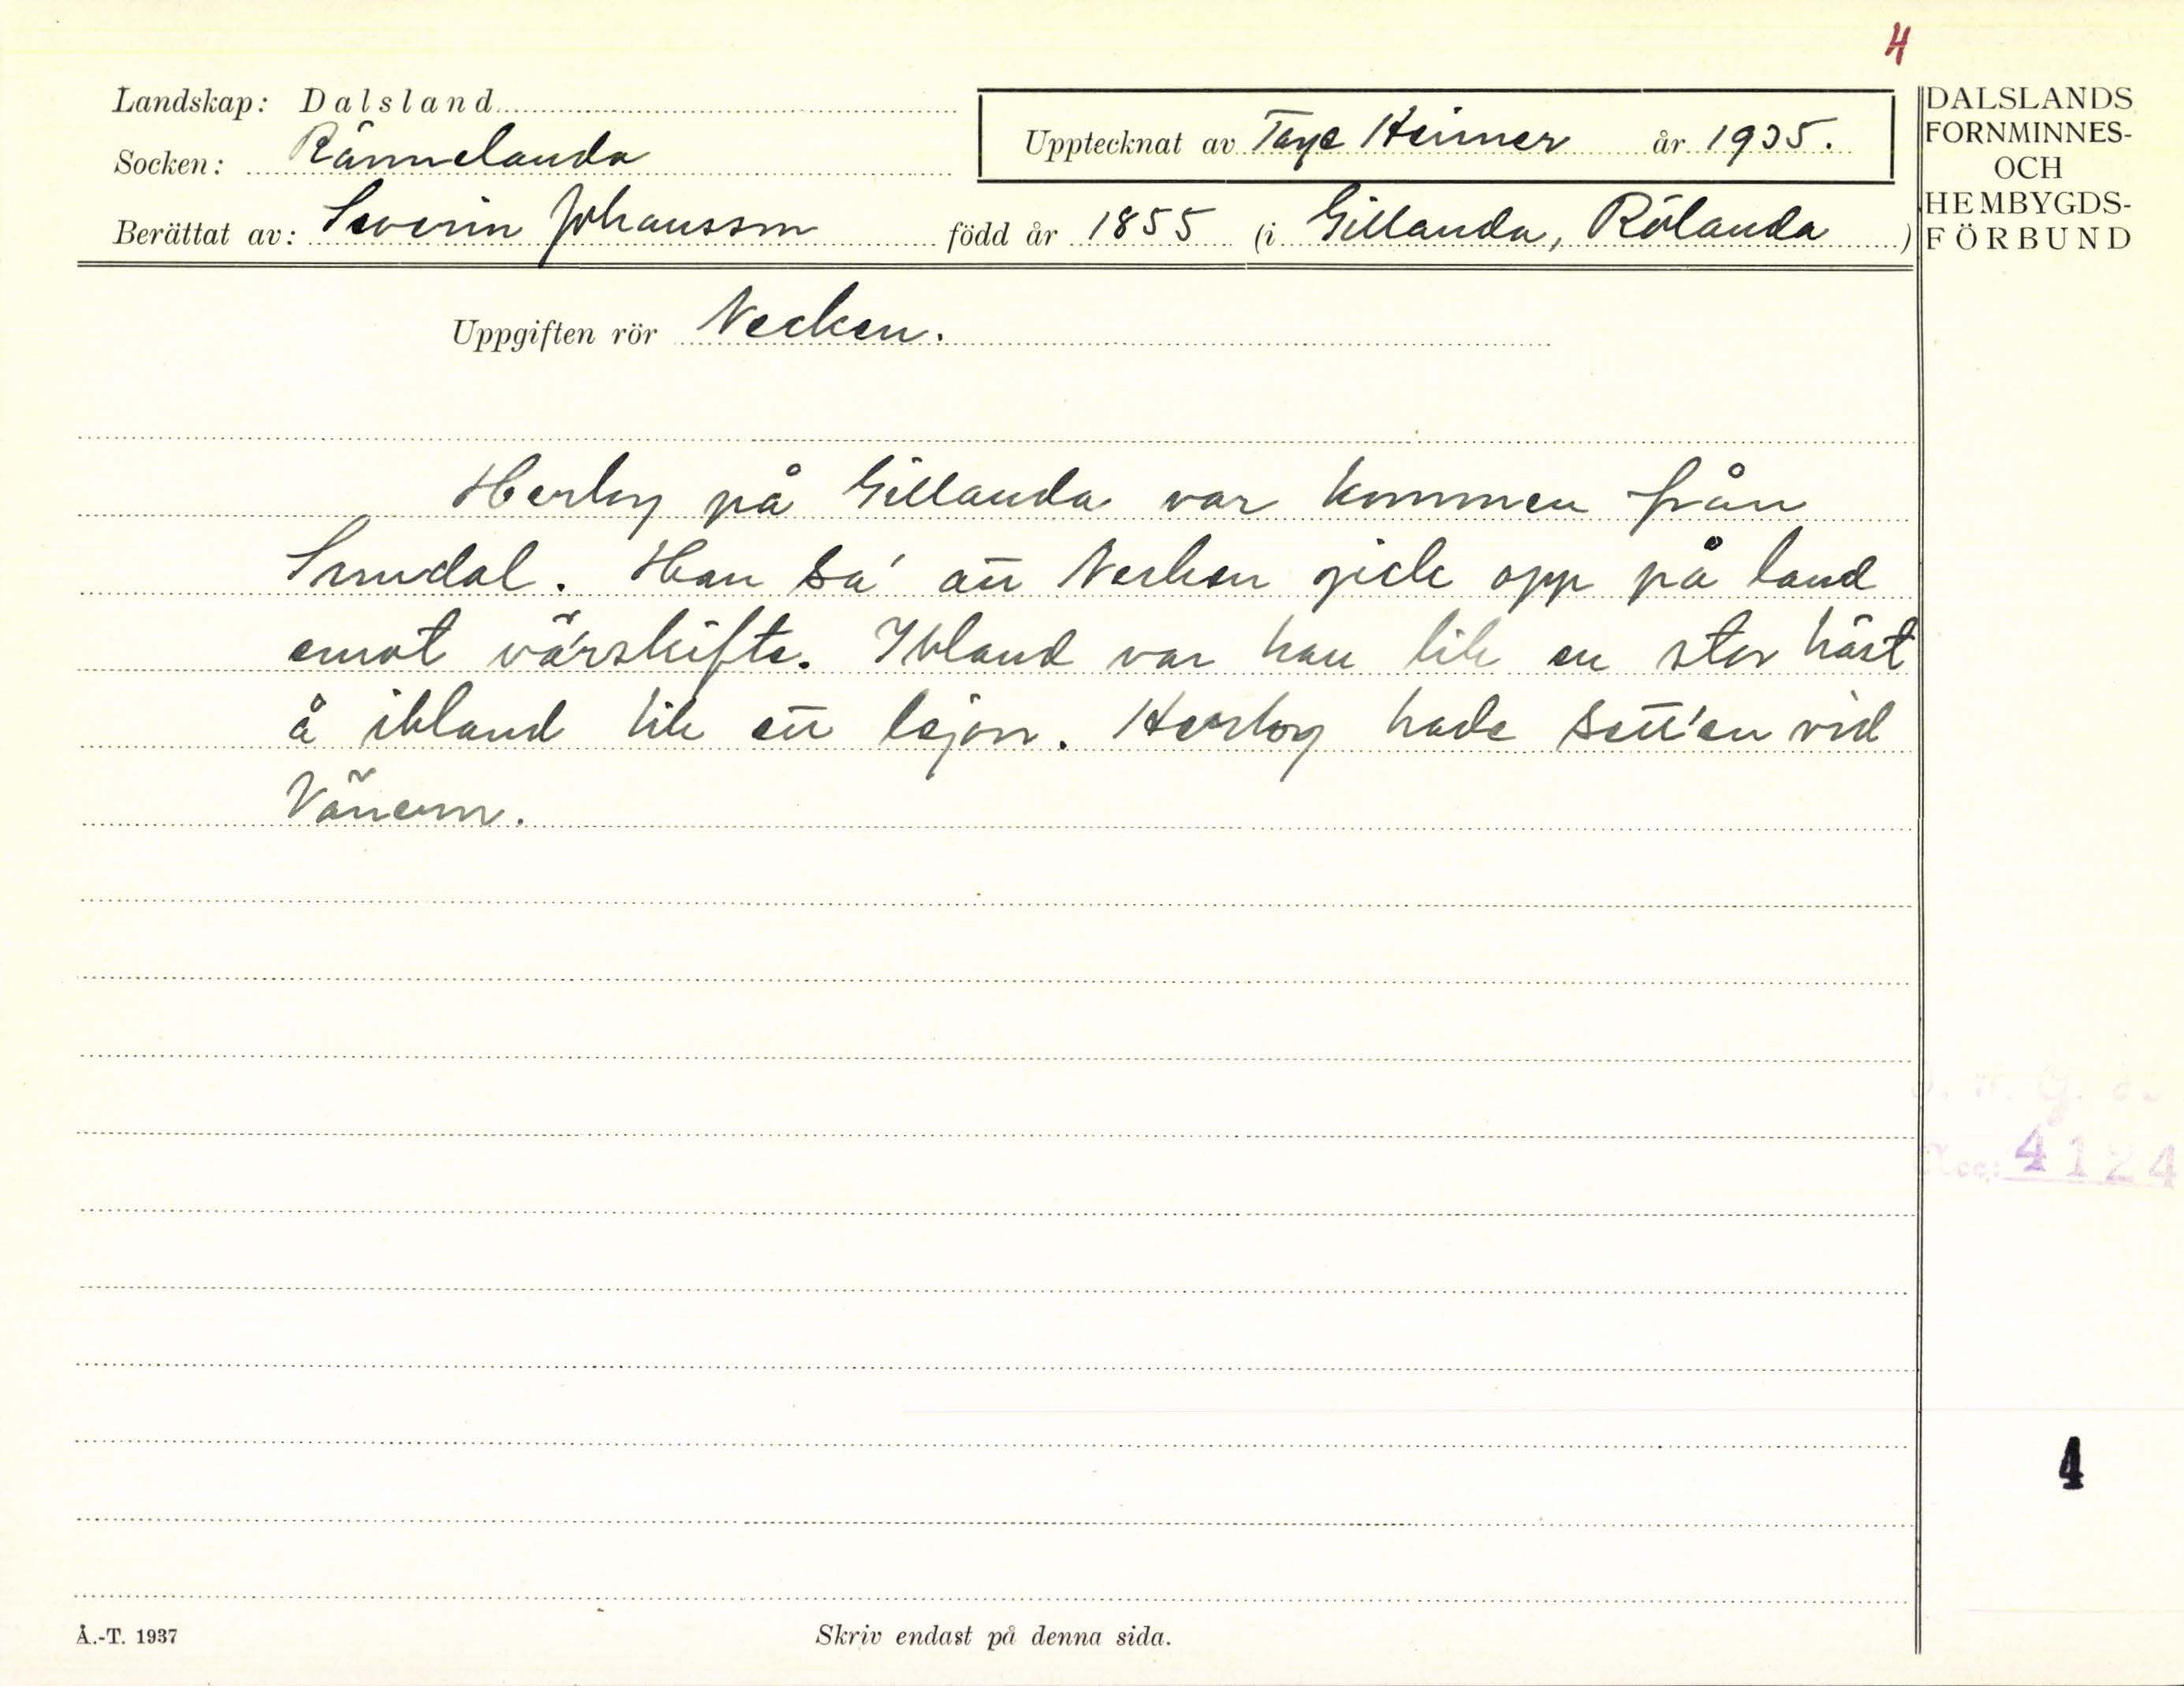 4
Landskap: Dalsland
Socken: Rännelanda
Upptecknat av Tage Heimer år 1935.
Berättat av: Severin Johansson född år 1855 (i Gillanda, Rölanda)
DALSLANDS
FORNMINNES-
OCH
HEMBYGDS-
FÖRBUND
Uppgiften rör Necken.
Herlog på Gillanda var kommen från
Sundal. Han sa' att Necken gick opp på land
emot värskifte. Ibland var han lik en stor häst
å ibland lik ett lejon. Herlog hade sett'en vid
Vänern.
Acc: 4124
4
Å.-T. 1937
Skriv endast på denna sida.